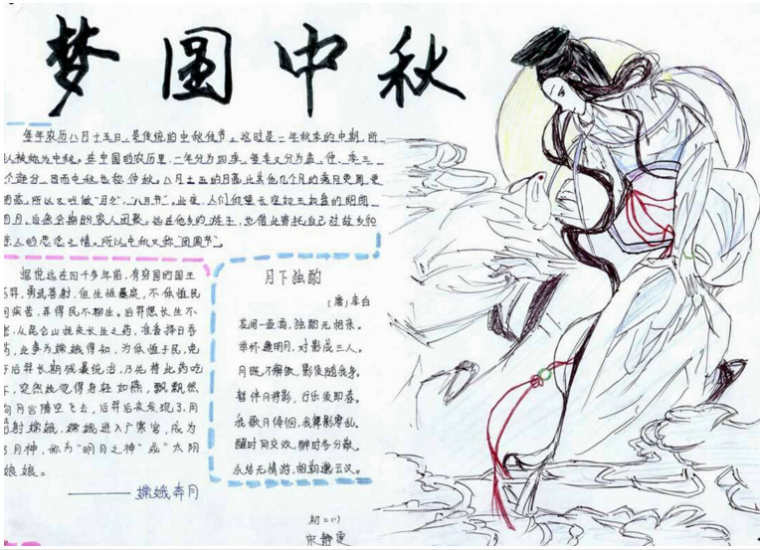 梦圆中秋
每年农历八月十五日，是传统的中秋佳节。这时是一年秋季的中期，所
以被称为中秋。在中国的农历里，一年分为四季，每季又分为孟、仲、季三
个部分，因而中秋也称仲秋。八月十五的月亮比其他几个月的满月更圆，更
明亮，所以又叫做“月夕”，“八月节”。此夜，人们仰望天空如玉如盘的朗朗
明月，自然会期盼家人团聚。远在他乡的游子，也借此寄托自己对故乡和
亲人的思念之情。所以中秋又称“团圆节”。
据说远在四千多年前，有穷国的国王
后羿，勇武善射，但生性暴虐，不体恤民
间疾苦，弄得民不聊生。后羿想长生不
老，从昆仑山找来长生之药，准备择日吞
药，此事为嫦娥得知，为体恤子民，免
于后羿长期残暴统治，乃先将此药吃
下，突然她觉得身轻如燕，飘飘然
向月宫腾空飞去，后羿后来发现了，用
箭射嫦娥，嫦娥进入广寒宫，成为
了月神，称为“明月之神”或“太阴
娘娘。
——— 嫦娥奔月
月下独酌
（唐）李白
花间一壶酒，独酌无相亲。
举杯邀明月，对影成三人。
月既不解饮，影徒随我身。
暂伴月将影，行乐须即春。
我歌月徘徊，我舞影零乱。
醒时同交欢，醉时各分散。
永结无情游，相期邈云汉。
初二(1)